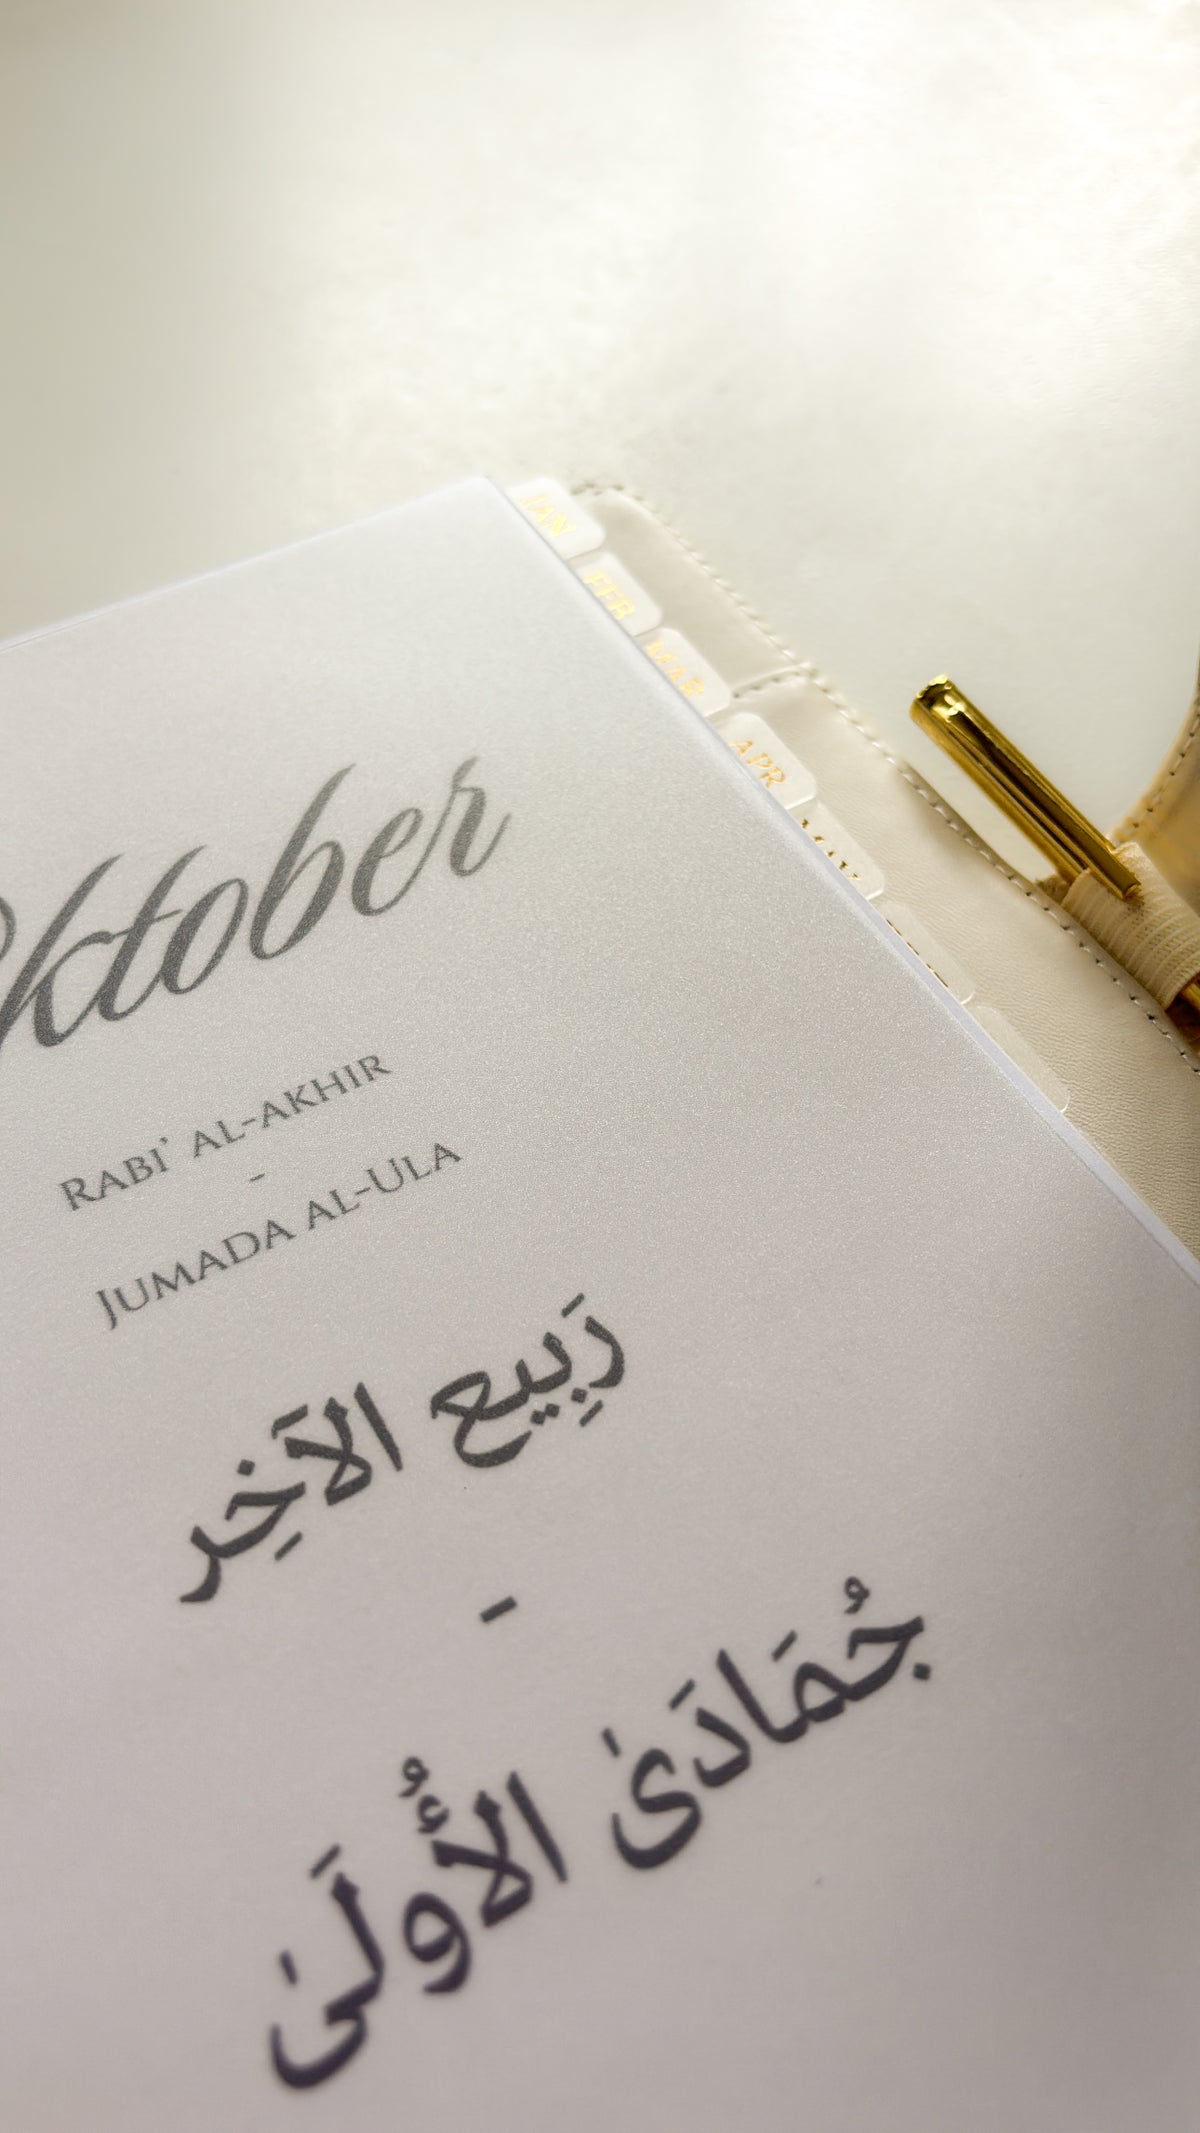 Oktober
RABI' AL-AKHIR
-
JUMADA AL-ULA
رَبِيع الآخِر
-
جُمَادَىٰ الأُولَىٰ
JAN
FEB
MAR
APR
MAY